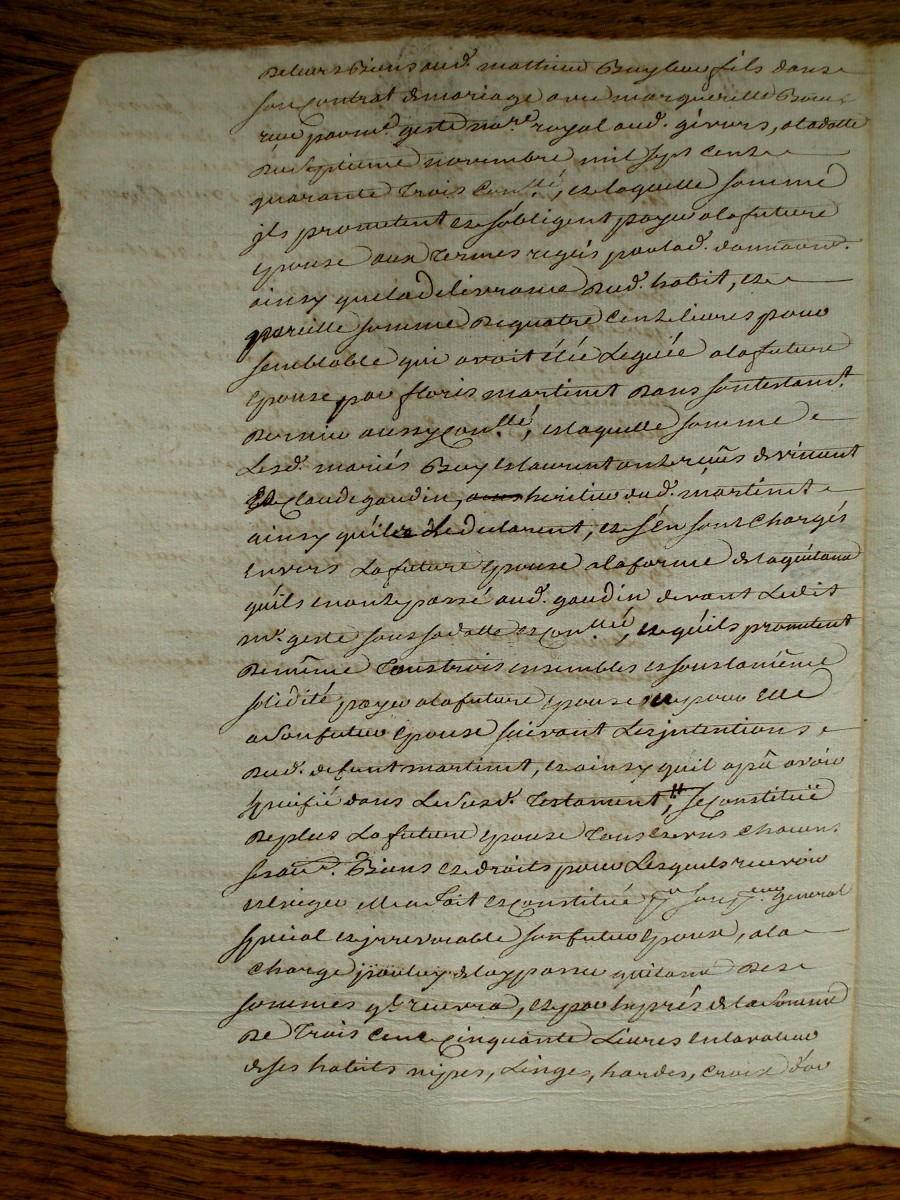 de leurs Biens aud. mathieu Buy leur fils dans
son Contrat de mariage avec margueritte
par me. geste nore. royal aud. givors, a la datte
du septieme novembre mil sept cent
quarante trois Conllé, et laquelle somme
jls promettent et s'obligent payer a la future
Epouse aux termes reglés par lad. donnaon.
ainsy que la delivrance dud. habit, et
pareille somme de quatre cent livres pour
semblable qui avoit étée Leguée a la future
Epouse par floris martinet dans son testamt.
dernier aussy Conllé, et laquelle somme
Lesd. mariés Buy et laurent ont reçûe de vincent
et Claude gaudin, heritier dud. martinet
ainsy qu'ils le declarent, et s'en sont chargés
envers La future Epouse a la forme de la quittance
qu'ils en ont passé aud. gaudin devant Ledit
me. geste sous sa datte et Conllé, et qu'ils promettent
de même tous trois ensembles et sous la même
solidité, payer a la future Epouse et pour Elle
a son futur Epoux suivant Les jntentions
dud. defunt martinet, et ainsy qu'il a pû avoir
spécifié dans Le susd. Testament, se Constituë
de plus La future Epouse Tous et uns chacuns
ses au. Biens et droits pour Lesquels recevoir
et exiger elle a fait et Constitué pr. son pcur. general
special et jrrevocable son futur Epoux, a la
charge par luy de luy passer quittance des
sommes ql. recevra, et par Exprés de la somme
De Trois Cent Cinquante Livres en la valeur
de ses habits nipes, Linges, hardes, croix d'or